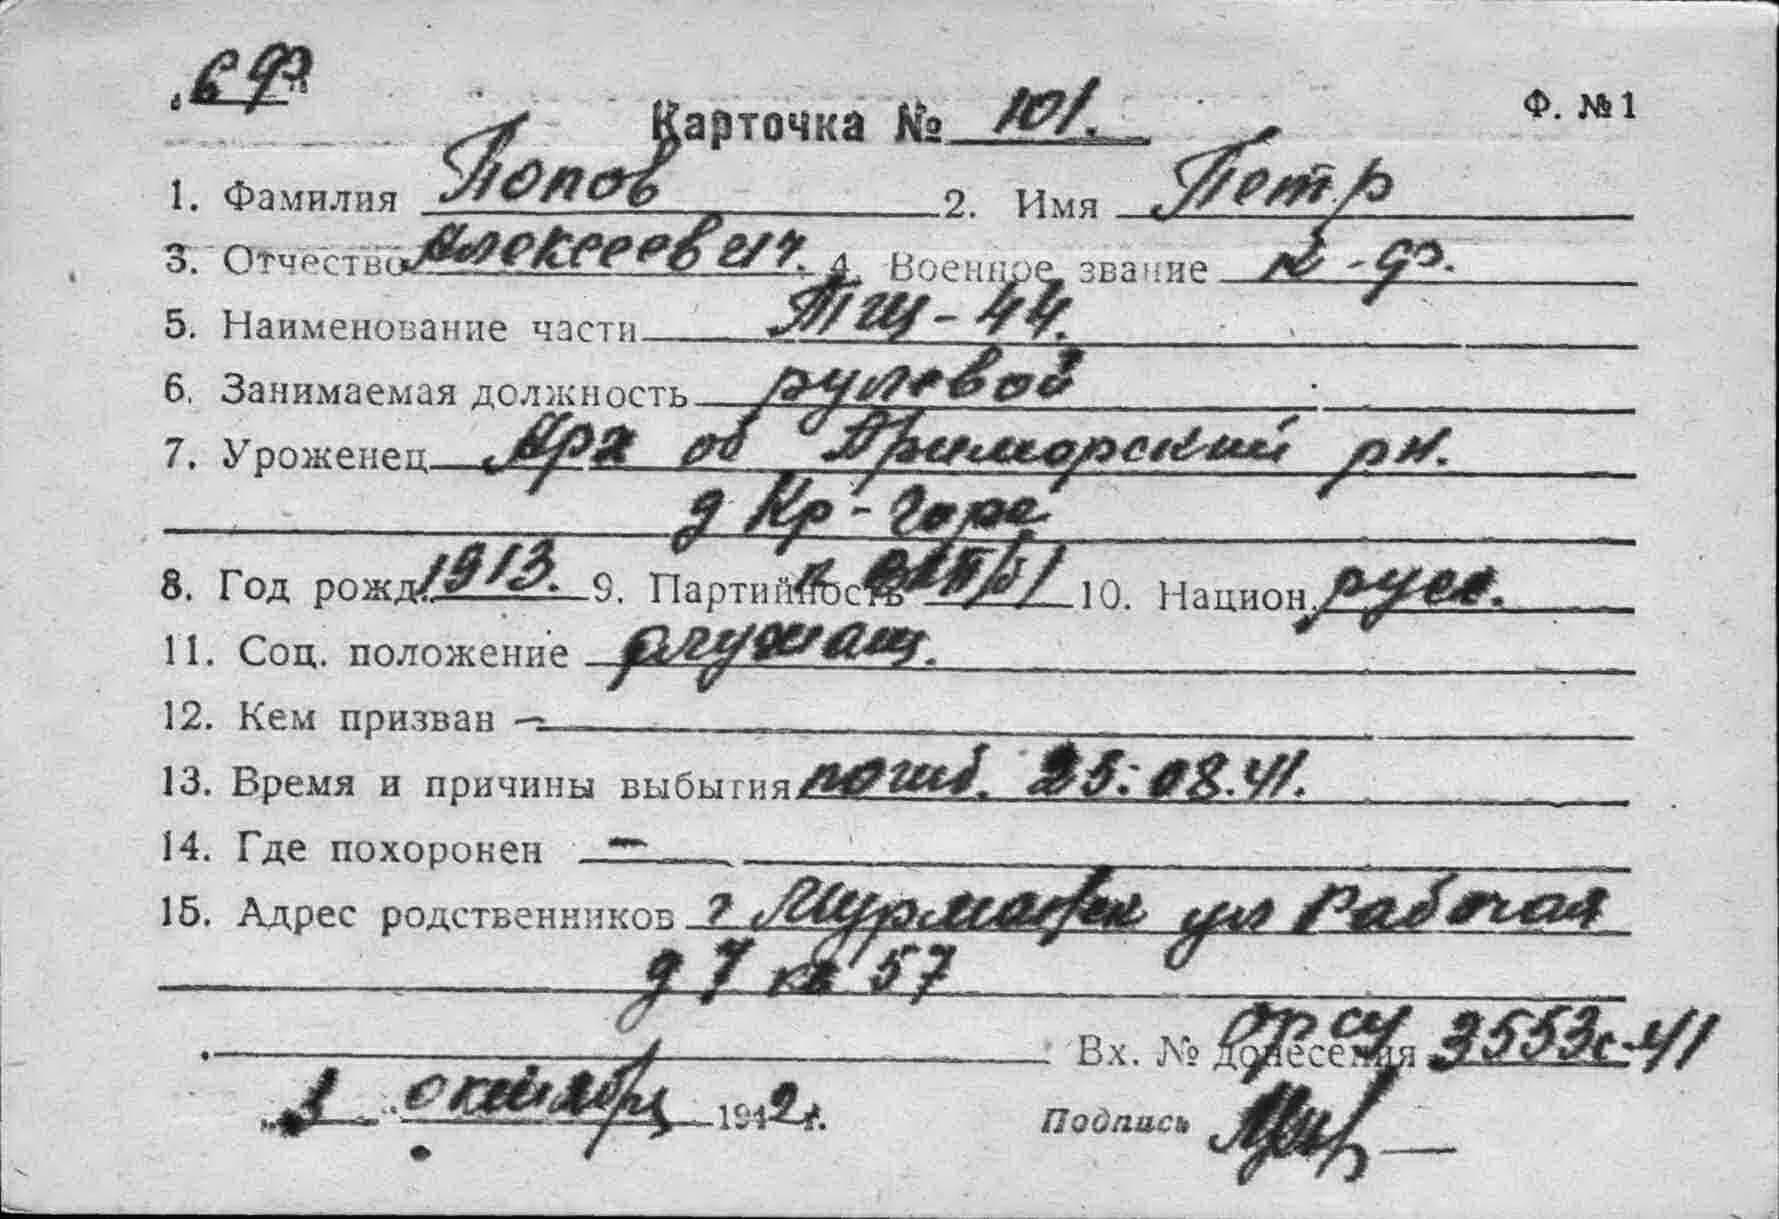 СФ
Карточка № 101. Ф. № 1
1. Фамилия Попов 2. Имя Петр
3. Отчество Алексеевич. 4. Военное звание к-ф.
5. Наименование части ТЩ-44.
6. Занимаемая должность рулевой
7. Уроженец Арх об Приморский рн.
д Кр-Гора
8. Год рожд. 1913. 9. Партийность ВКП/б/ 10. Национ. русск.
11. Соц. положение служащ.
12. Кем призван –
13. Время и причины выбытия погиб. 25.08.41.
14. Где похоронен –
15. Адрес родственников г Мурманск ул Рабочая
д 7 кв 57
Вх. № донесения орсу 3553с-41
октября 1942 г. Подпись